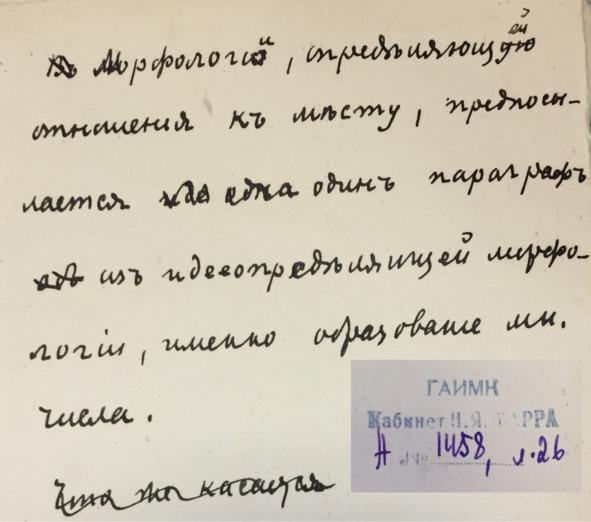 Морфологіи, опредѣляющей
отношения къ мѣсту, предпосы-
лается одинъ параграфъ
изъ идееопредѣляющей морфо-
логіи, именно образованіе мн.
числа.
Что же касается
ГАИМК
Кабинет Н.Я. МАРРА
А № 1458, л. 26